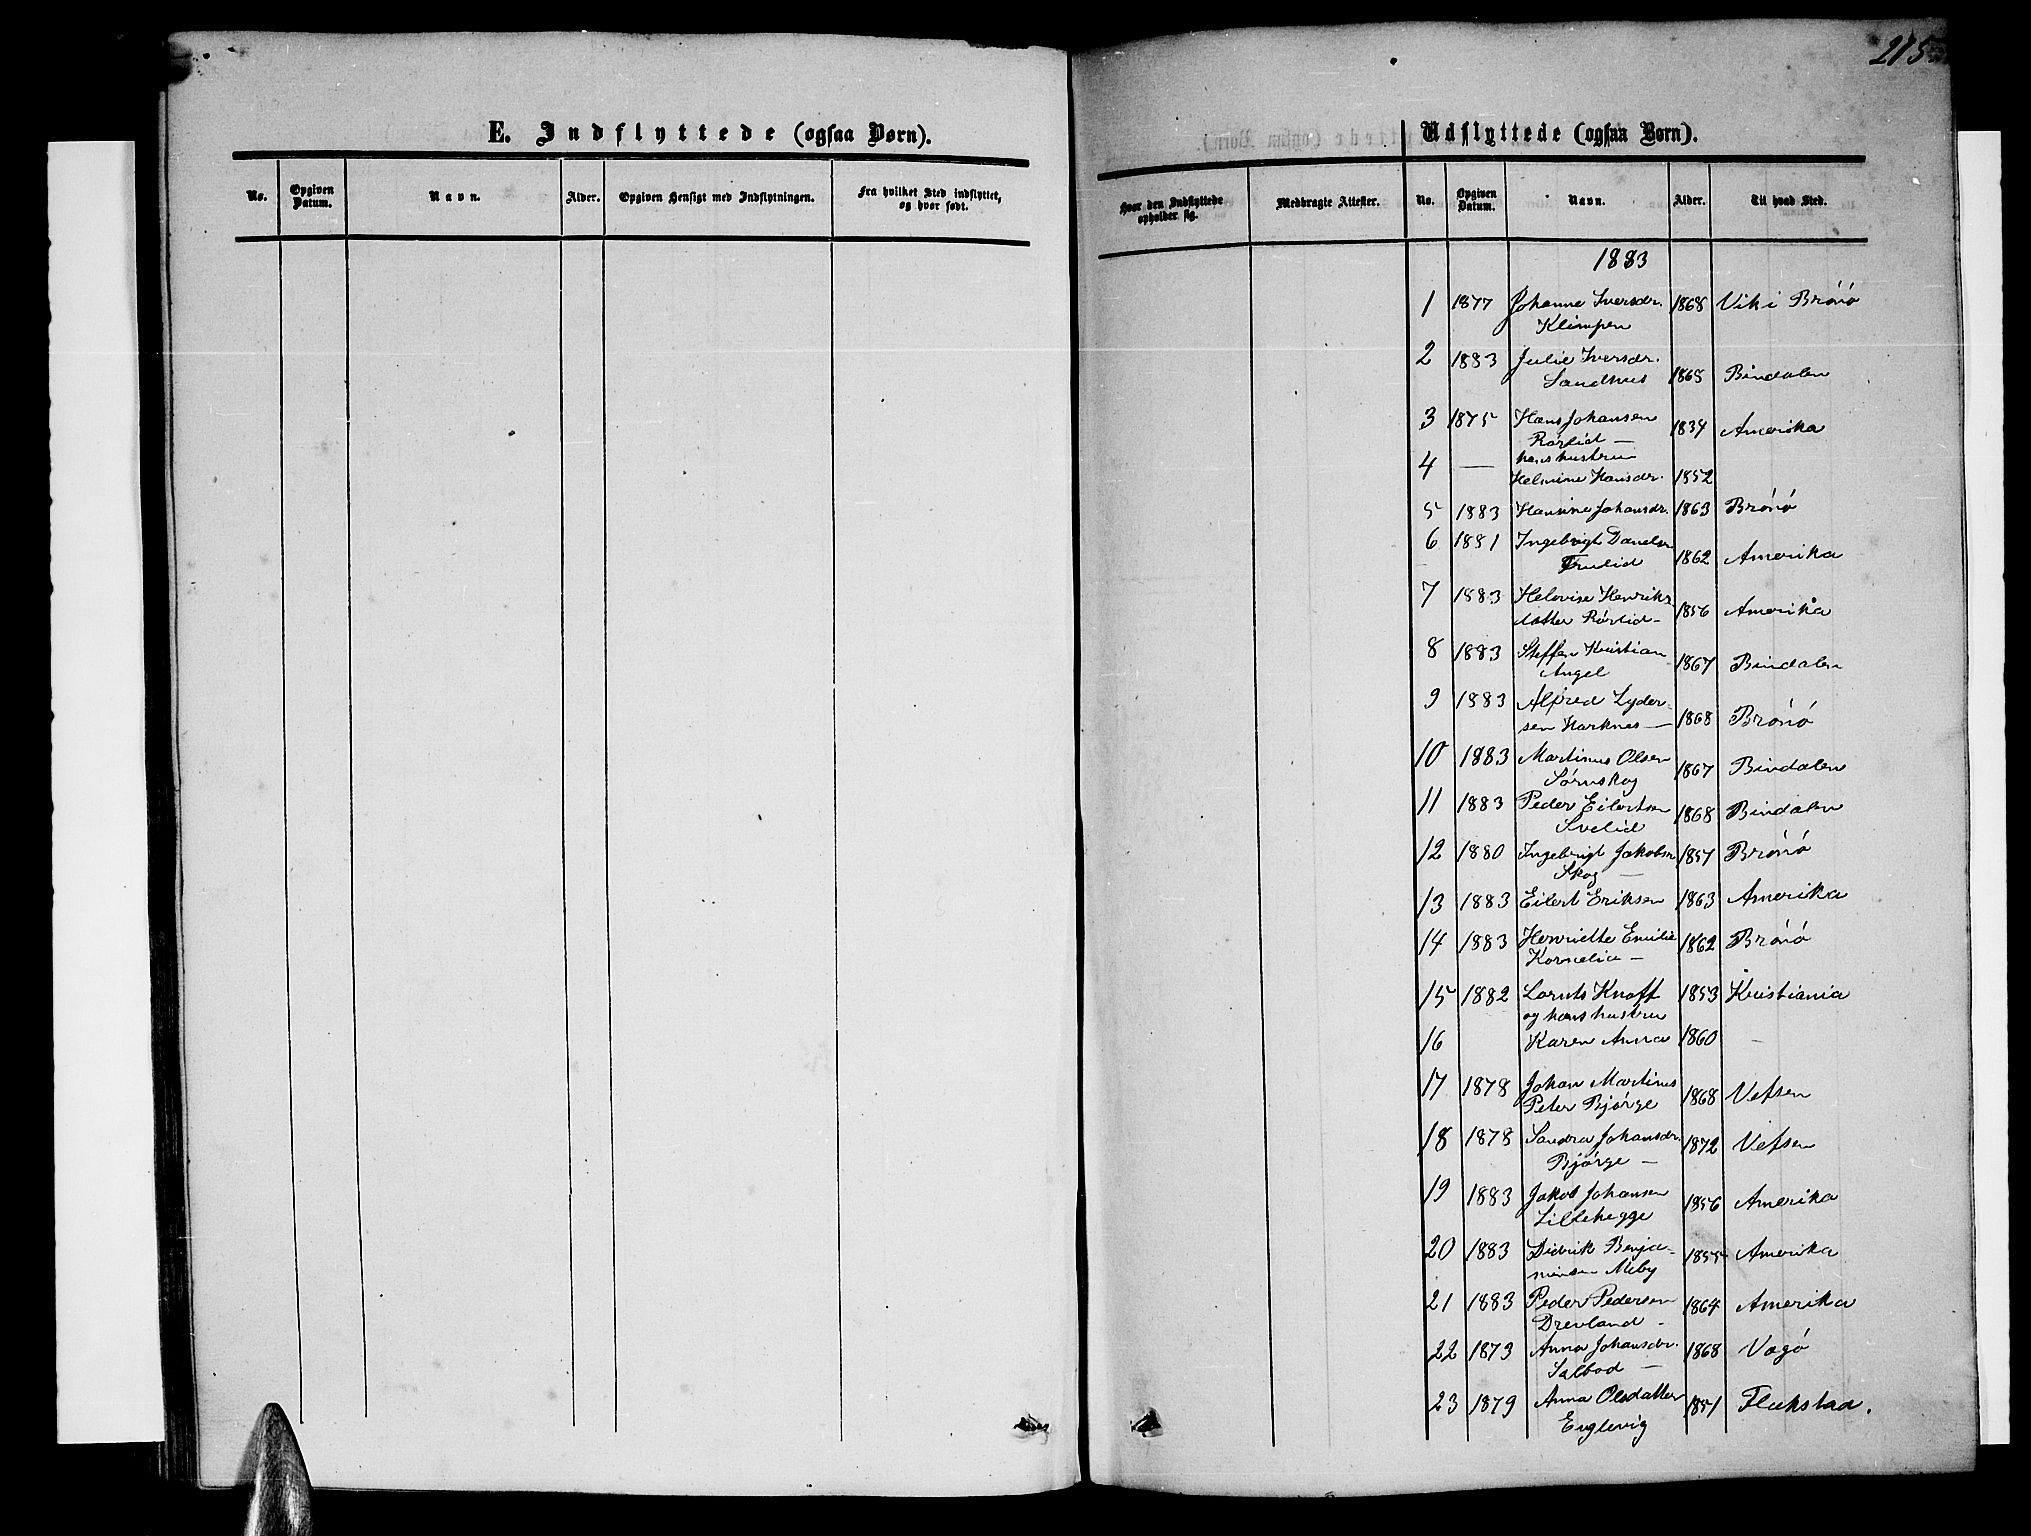 275
E. Indflyttede (ogsaa Børn).
No. Opgiven Datum. Navn. Alder. Opgiven Hensigt med Indflytningen. Fra hvilket Sted indflyttet, og hvor født.
Udflyttede (ogsaa Børn).
Hvor den Indflyttede opholder sig. Medbragte Attester. No. Opgiven Datum. Navn. Alder. Til hvad Sted.
1883
1 1877 Johanne Iversdr. 1868 Vik i Brönö
Klimpen
2 1883 Julie Iversdr.
Sandhus 1868 Bindalen
3 1875 Hans Johansen 1834 Amerika
Rørlid —
4 — hans hustru
Helmine Hansdr. 1852
5 1883 Hansine Johansdr. 1863 Brönö
6 1881 Ingebrigt Danelsen
Frulid 1862 Amerika
7 1883 Helovise Henriks
datter Rörlid- 1856 Amerika
8 1883 Steffen Kristian
Angel 1867 Bindalen
9 1883 Alfred Lyder-
sen Harknes — 1868 Brönö
10 1883 Martinus Olsen
Sørnskog 1867 Bindalen
11 1883 Peder Eilertsen
Svelid 1868 Bindalen
12 1880 Ingebrigt Jakobsen 1857 Brönö
Skog —
13 1883 Eilert Eriksen 1863 Amerika
14 1883 Henriette Emilie 1862 Brönö
Kornelia —
15 1882 Lornts Knoff 1853 Kristiania
og hans hustru
16 Karen Anna 1860 -
17 1878 Johan Martinus
Peter Bjørge 1868 Vefsen
18 1878 Sandra Johansdr. 1872 Vefsen
Bjørge —
19 1883 Jakob Johansen
Lillehegge 1856 Amerika
20 1883 Didrik Benja-
minsen Moby 1855 Amerika
21 1883 Peder Pedersen 1864 Amerika
Drevland -
22 1873 Anna Johansdr. 1868 Vegö
Salbod —
23 1879 Anna Olsdatter 1851 Flekstad.
Englevig